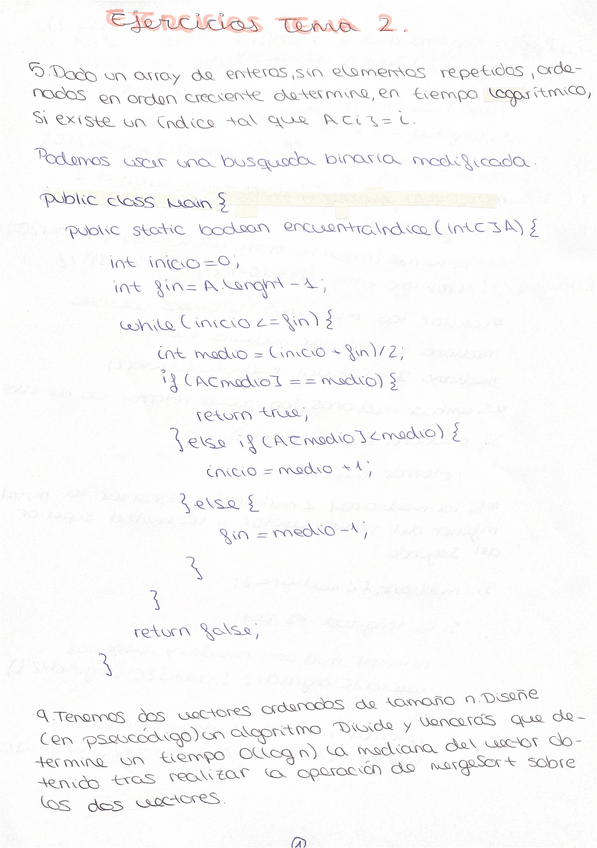 Ejercicios Tema 2.
5. Dado un array de enteros, sin elementos repetidos, orde-
nados en orden creciente determine, en tiempo logarítmico,
si existe un índice tal que A[i]=i.
Podemos usar una busqueda binaria modificada.
public class Main {
public static boolean encuentraIndice(int[]A) {
int inicio=0;
int fin=A.lenght-1;
while(inicio<=fin){
int medio=(inicio+fin)/2;
if (A[medio] == medio) {
return true;
} else if (A[medio]<medio) {
inicio = medio +1;
} else {
fin = medio-1;
}
}
return false;
}
9. Tenemos dos vectores ordenados de tamaño n. Diseñe
(en pseucódigo) un algoritmo Divide y Vencerás que de-
termine un tiempo O(log n) la mediana del vector ob-
tenido tras realizar la operación de mergeSort sobre
los dos vectores.
1